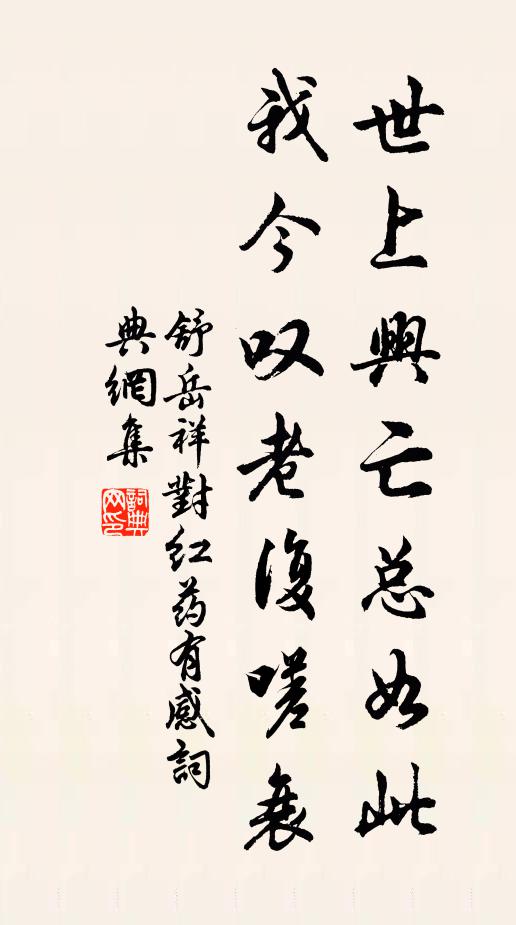 世上興亡总如此
我今叹老復嗟衰
舒岳祥對红药有感詞
典網集
詞典网印